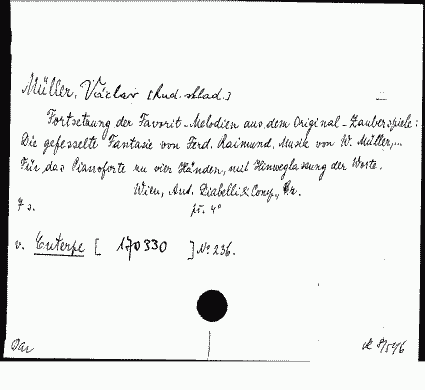 Müller, Václav [hud. sklad.]
Fortsetzung der Favorit-Melodien aus dem Original-Zauberspiele:
Die gefesselte Fantasie von Ferd. Raimund. Musik von W. Müller,...
Für das Pianoforte zu vier Händen, mit Hinweglassung der Worte.
Wien, Ant. Diabelli & Comp.,
7 s. 4°
v. Euterpe [ 170330 ] No 236.
Dar 8/546